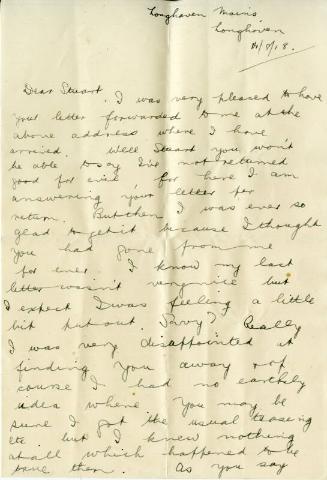 Longhaven Mains
Longhaven
/8/18.
Dear Stuart. I was very pleased to have
your letter forwarded to me at the
above address where I have
arrived. Well Stuart you won't
be able to say I've not returned
good for evil for here I am
answering your letter per
return. But then I was ever so
glad to get it because I thought
you had gone from me
for ever. I know my last
letter wasn't very nice but
I expect I was feeling a little
bit put out. Savvy? Really
I was very disappointed at
finding you away & of
course I had no earthly
idea where you may be
sure I got the usual teasing
etc but I knew nothing
at all which happened to be
true then. As you say